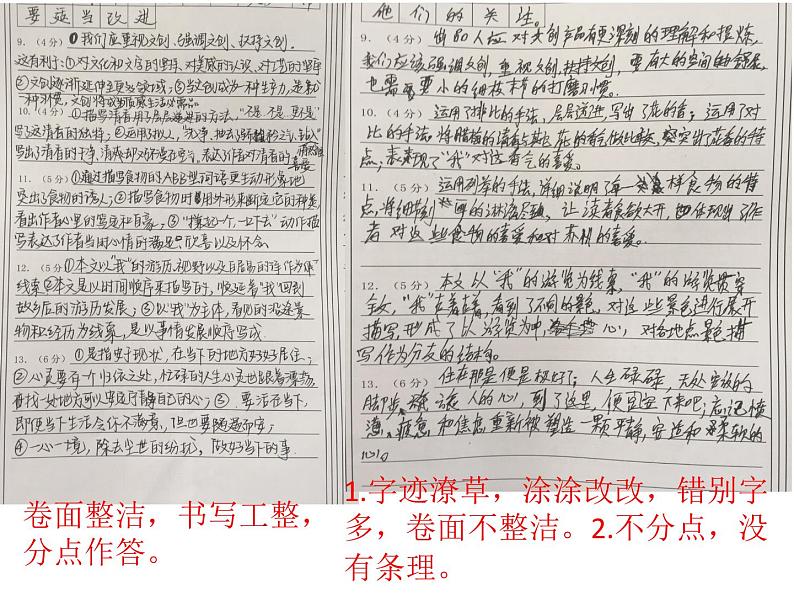 要 适 当 改 进
9.（4分）①我们应重视文创、强调文创、扶持文创.
这有利于:①对文化和文字的坚持、对美感的认识、对工艺的坚守
②文创逐渐延伸至更多领域;③当文创成为一种生产力,是新
一种习惯,文创将成为
10.（4分）①描写清香用了层层递进的方法,“不是 不是 更不是”
写了这清香的独特;②运用拟人,
写出了清香的干净、清爽
11.（5分）①通过描写食物的ABB型词语更生动形象地
突出了食物的诱人;②描写食物时用外形来断定它的种类
看出作者心里的笃定和自豪;③“撑起一个,一口下去”动作描
写表达了作者当时心情的满足、欣喜以及怀念.
12.（5分）①本文以“我”的游历、视野以及白居易的诗作为
线索②本文是以时间顺序来描写的,顺延着“我”回到
故乡后的游历发展;③以“我”为主体,看见的沿途景
物和经历为线索,是以事情发展顺序写成.
13.（6分）①是指安于现状,在当下的地方好好居住;
②心灵要有一个归依之处,忙碌的人生心灵也跟着漂荡.
寻找一处地方可以安定静自己的心;③ 要活在当下,
即使当下生活令你不满意,但也要随遇而安;
④一心一境,除去尘世的纷扰,做好当下的事.
他 们 的 关 注。
9.（4分） 对文创产品有更深刻的理解和提炼,
我们应该强调文创,重视文创,扶持文创,要有大的空间的
也需要小的细枝末节的打磨习惯。
10.（4分）运用了排比的手法,层层递进,写出了花的香;运用了对
比的手法,将腊梅的清香与其他花的香气做比较,突出了花香的特
点,表现了“我”对这香气的喜爱。
11.（5分）运用列举的手法,详细说明了每一样食物的特
点,将细节刻画的淋漓尽致,让读者食欲大开,也体现出了作
者对这些食物的喜爱和对苏州的喜爱。
12.（5分）本文以“我”的游览为线索,“我”的游览贯穿
全文,“我”走着走着,看到了不同的景色,对这些景色进行展开
描写,形成了以游览为中心,对各地点景色描
写作为分支的结构。
13.（6分）住在那里便是极好了;人生碌碌,无处安放的
脚步,疏 人的心,到了这里,便安定下来吧;忘记愤
懑、疲惫和焦虑重新被塑造一颗平静,安适和柔软的
心。
卷面整洁，书写工整，
分点作答。
1.字迹潦草，涂涂改改，错别字
多，卷面不整洁。2.不分点，没
有条理。